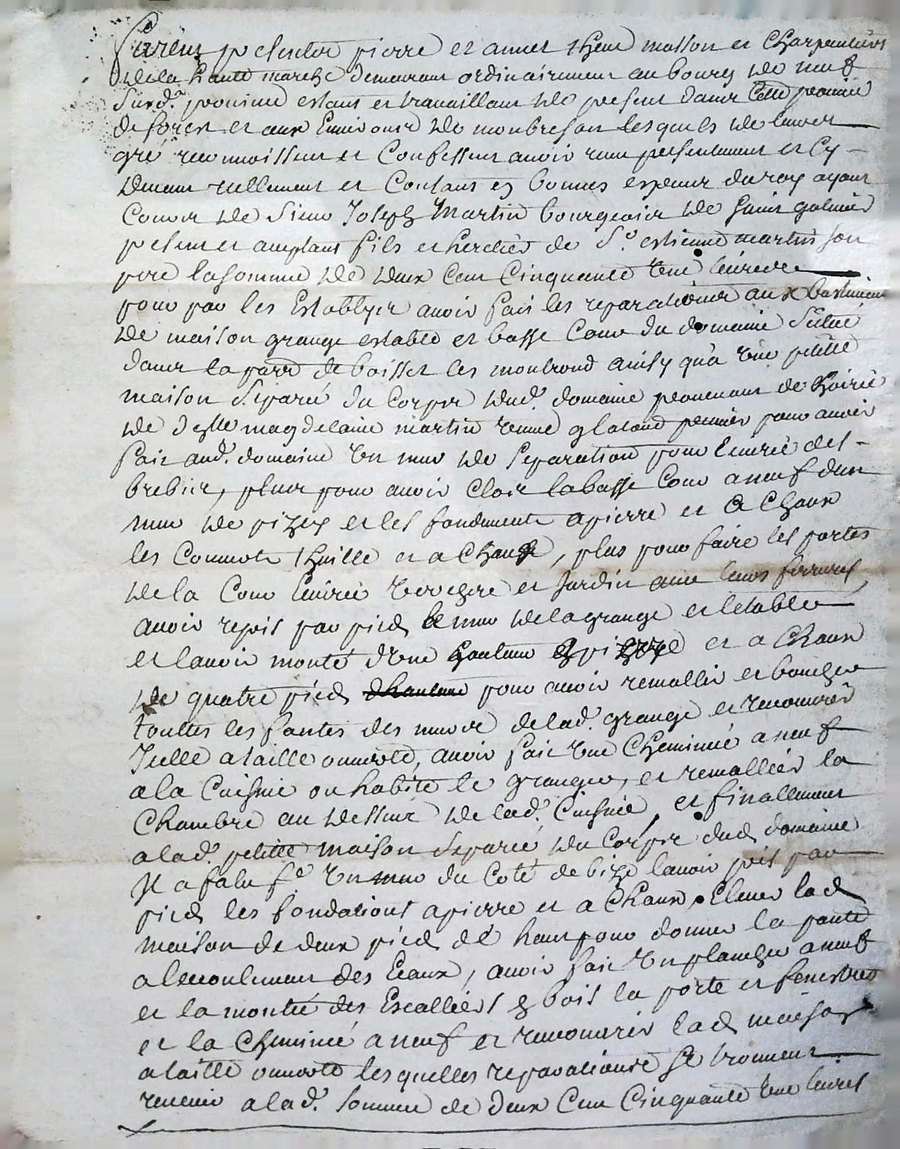 furent presents pierre et annet maSson et Charpentiers
de la haute marche demeurant ordinairement au bourg de neuf
Surd. province estans et travaillant de present dans Cette province
de forest et aux Environs de monbrison lesquels de leur
gré reconnoissent et Confessent avoir receu presentement et Cy
devant reellement et Contant en bonnes especes du roy ayant
Cours de Sieur Joseph Martin bourgeois de Saint galmier
present et acceptant fils et herittier de Sr. estienne martin Son
pere la Somme de deux Cent Cinquante Une livres
pour par les Establys avoir fait les reparations aux bastiments
de maison grange estable et basse Cour du domaine Situé
dans la parr. de boisset les montrond ainsy qu'a Une petitte
maison Separée du Corps dud. domaine provenant de
de delle magdelaine martin veuve premier pour avoir
fait aud. domaine Un mur de Separation pour l'ecurie des
brebis, plus pour avoir Clos la basse Cour a neuf d'un
mur de pizey et les fondements a pierre et a Chaux
les Couverts thuille et a Chaux, plus pour faire les portes
de la Cour Ecurie verchere et Jardin avec leurs ferrures
avoir repris par pied le mur de la grange et l'etable
et l'avoir monté d'Une hauteur et a Chaux
de quatre pieds pour avoir remallié et bouché
touttes les fantes des murs de lad. grange et recouvrir
Icelle a taille ouverte, avoir fait Une Cheminée a neuf
a la Cuisine ou habite le granger, et remallier la
Chambre au dessus de lad. Cuisine, et finallement
a lad. petitte maison Separée du Corps dud. domaine
Il a falu fe. Un mur du Coté de bize l'avoir pris par
pied les fondations a pierre et a Chaux Elever lad.
maison de deux pieds de haut pour donner la pante
a lecoulement des Eaux, avoir fait Un plancher a neuf
et la montée des Escalliers bois la porte et fenestres
et la Cheminée a neuf et recouvrir lad. maison
a taille ouverte lesquelles reparations Se trouvent
revenir a lad. Somme de deux Cent Cinquante Une livres